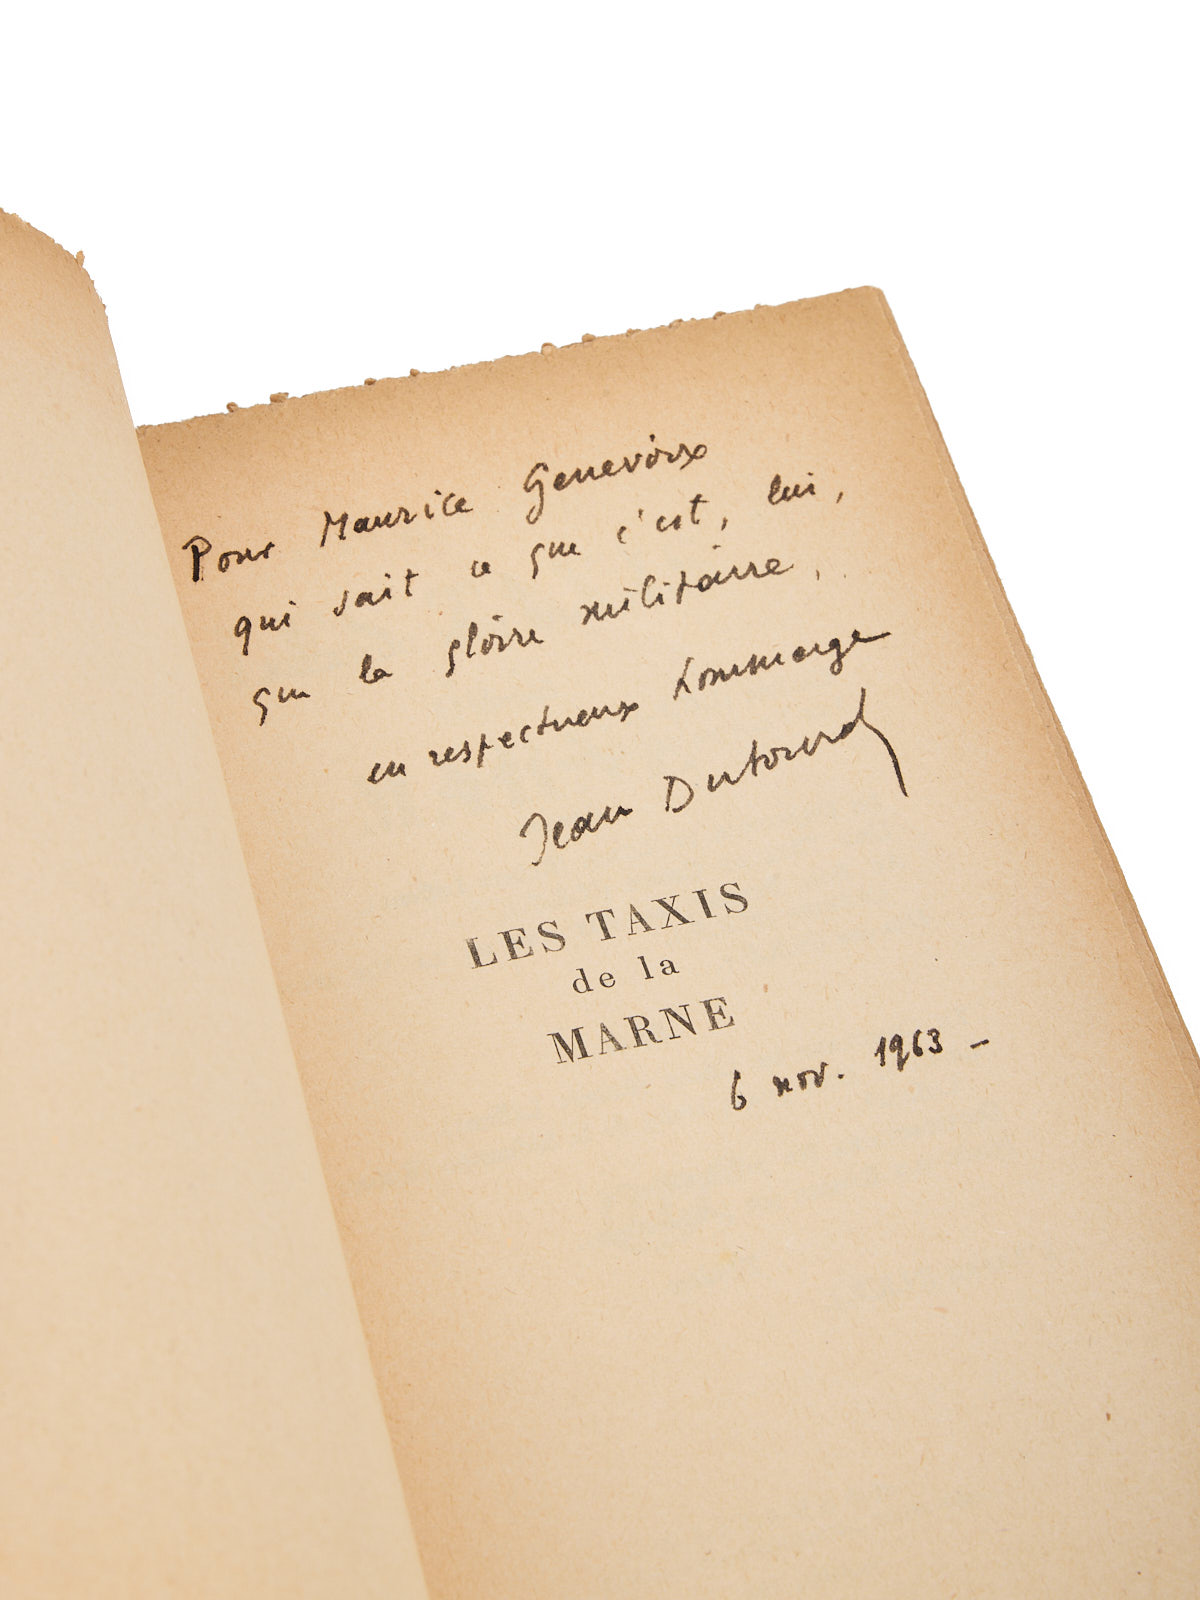 Pour Maurice Genevoix
qui sait ce que c'est, lui,
que la gloire militaire,
en respectueux hommage
Jean Dutourd
LES TAXIS
de la
MARNE
6 nov. 1963 –